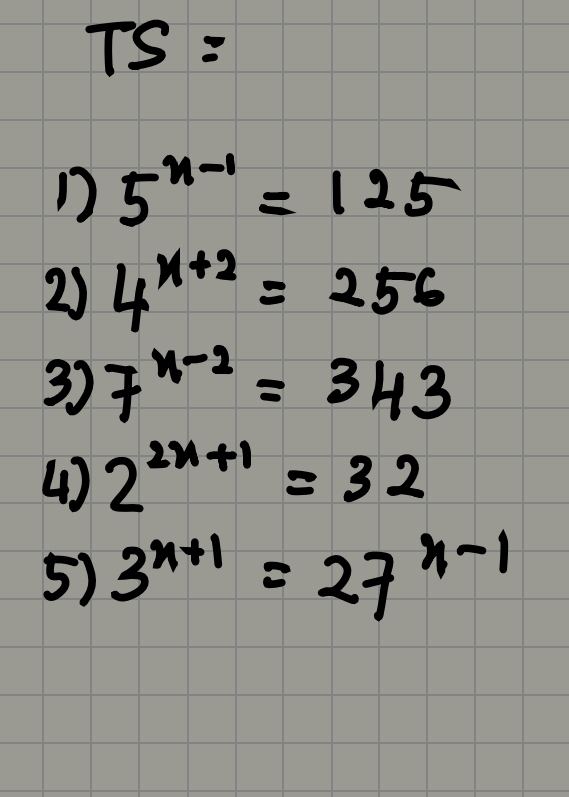 TS =
1) 5^{x-1} = 125
2) 4^{x+2} = 256
3) 7^{x-2} = 343
4) 2^{2x+1} = 32
5) 3^{x+1} = 27^{x-1}